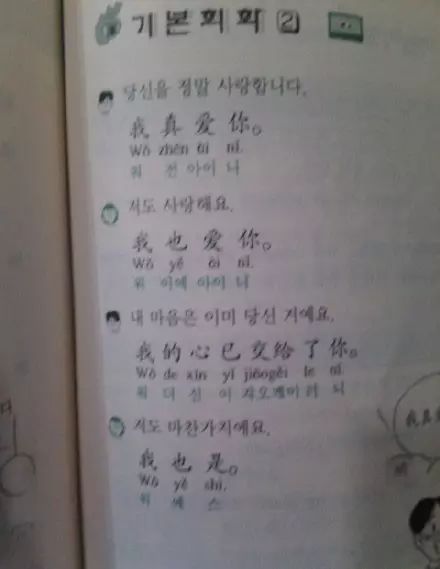 기본회화 2
당신을 정말 사랑합니다.
我真爱你。
Wǒ zhēn ài nǐ.
워 전 아이 니
저도 사랑해요.
我也爱你。
Wǒ yě ài nǐ.
워 이에 아이 니
내 마음은 이미 당신 거예요.
我的心已交给了你。
Wǒ de xīn yǐ jiāogěi le nǐ.
워 더 신 이 쟈오게이 러 니
저도 마찬가지예요.
我也是。
Wǒ yě shì.
워 예 스